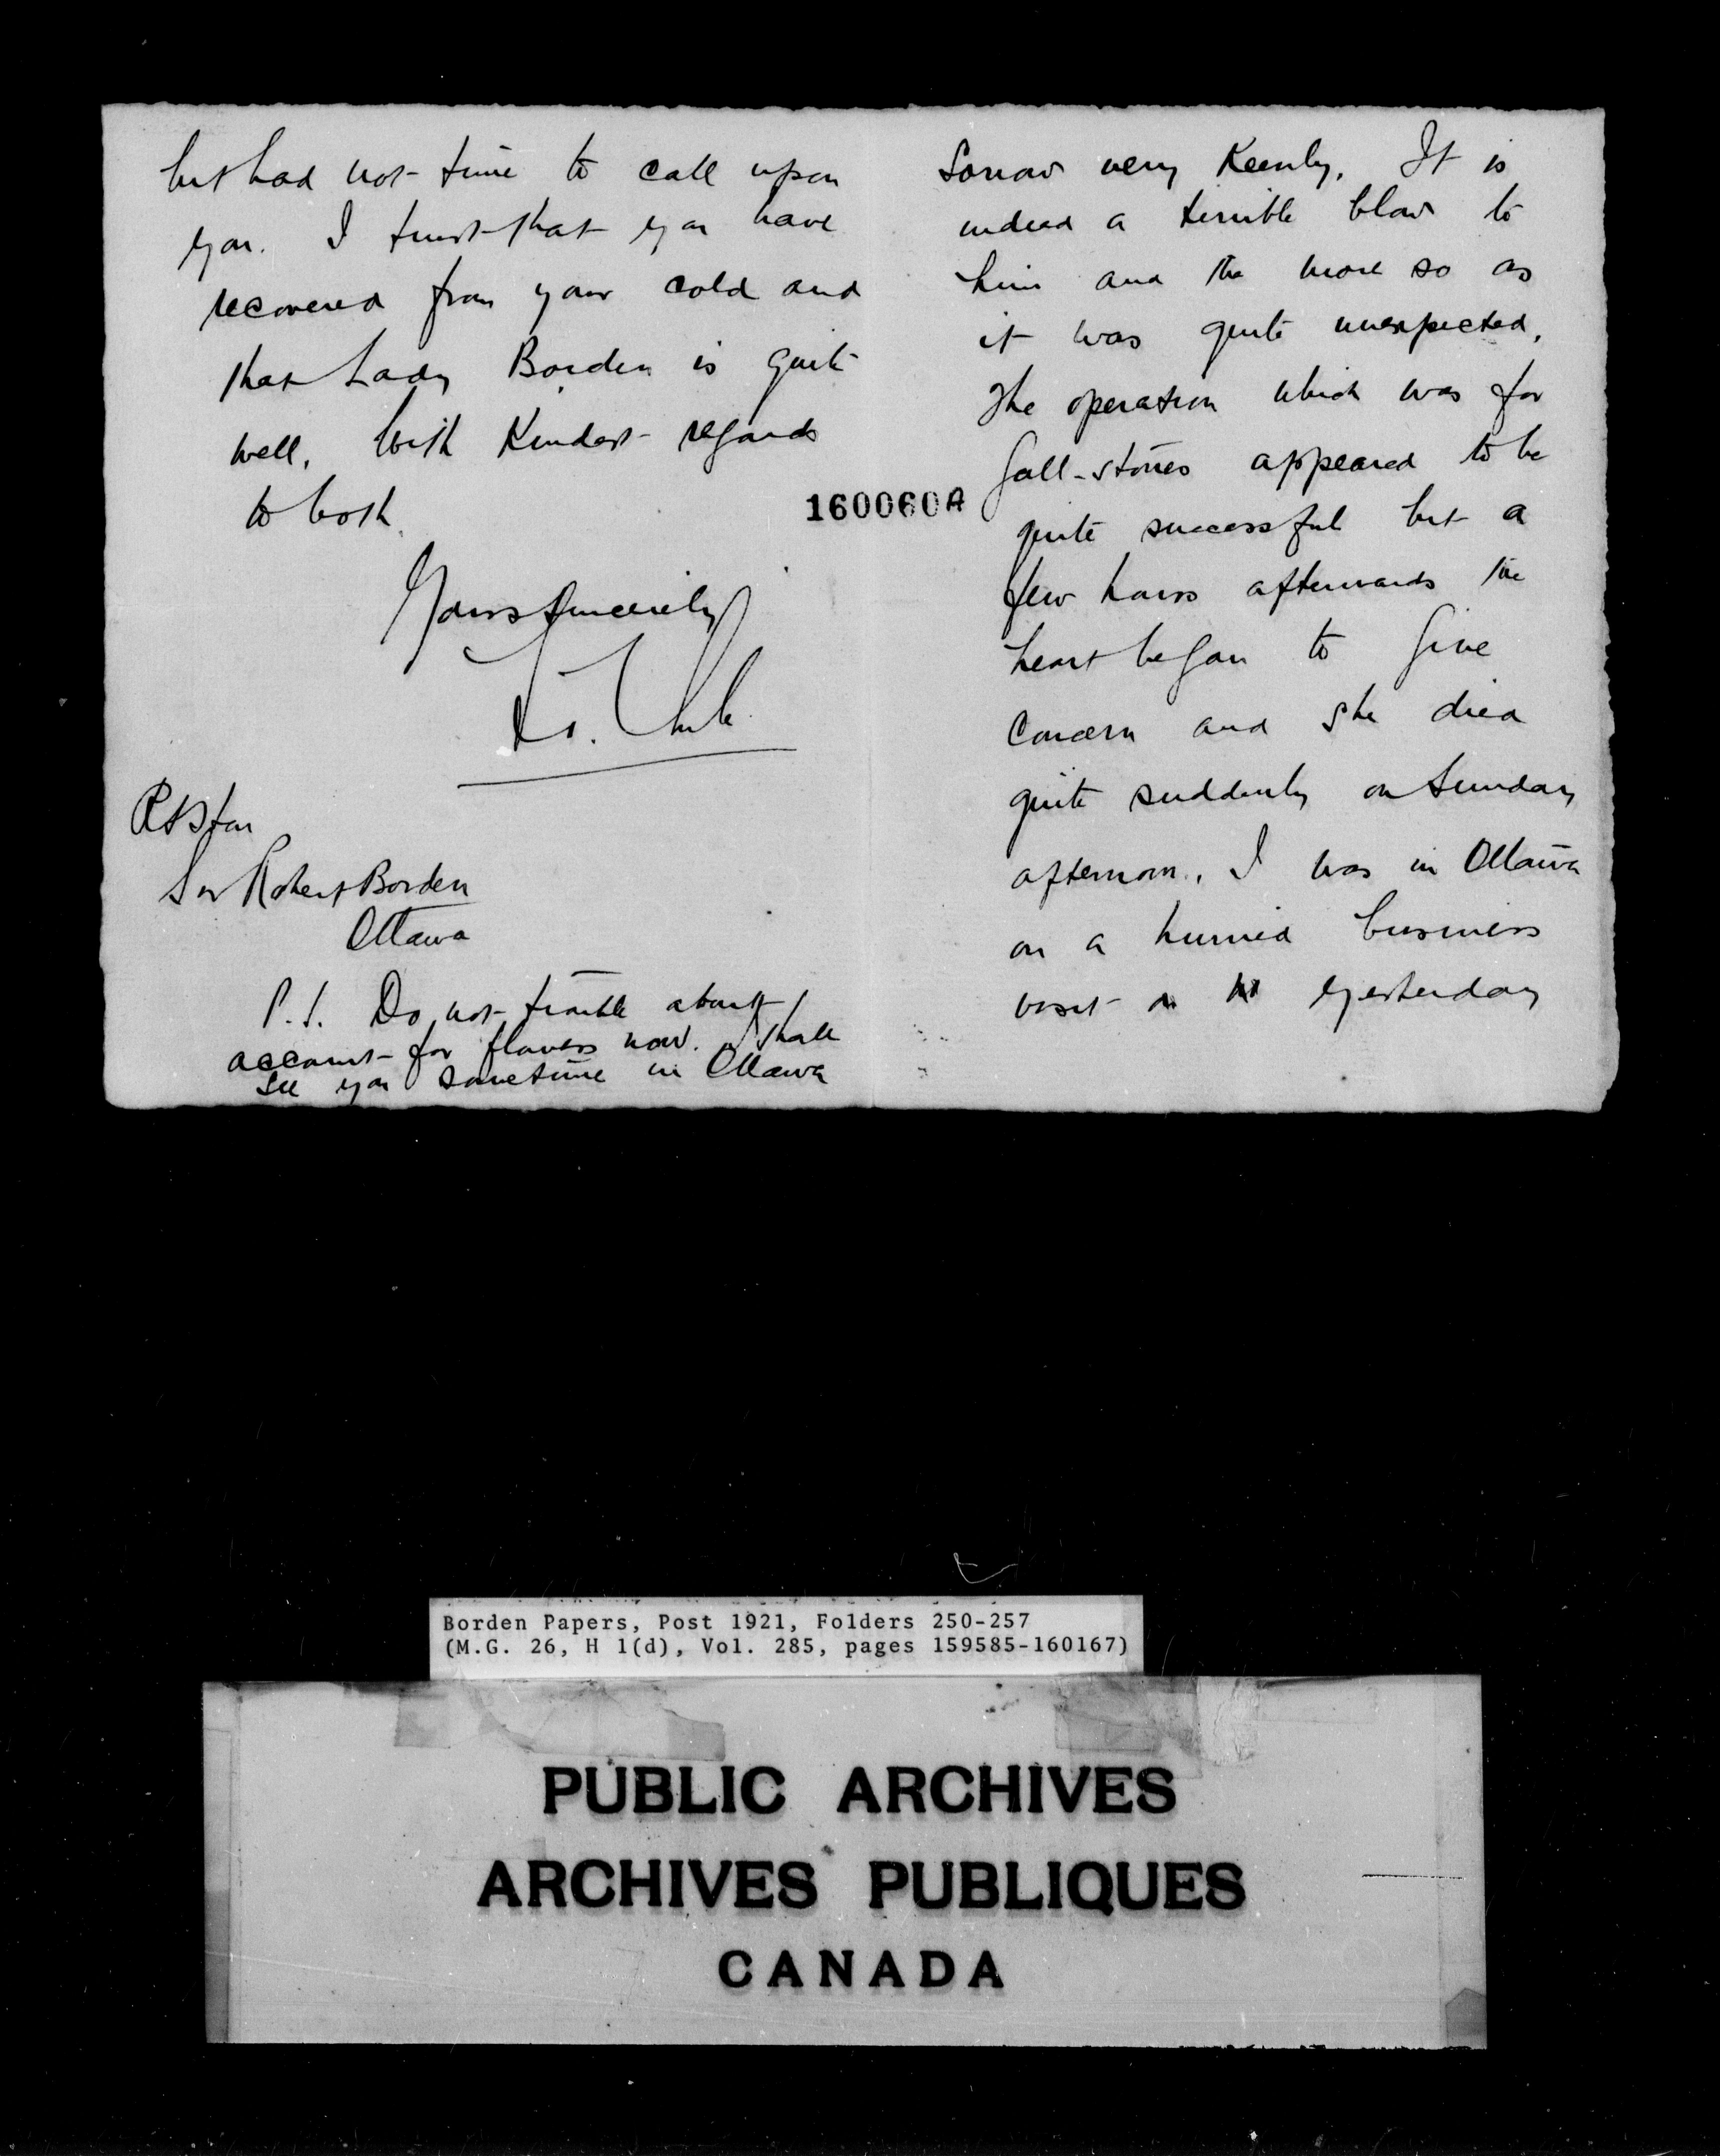 but had not time to call upon
you. I trust that you have
recovered from your cold and
that Lady Borden is quite
well. With kindest regards
to both
Yours sincerely
Sir Robert Borden
Ottawa
P.S. Do not trouble about
account for flowers now. I shall
see you sometime in Ottawa
160060A
Sorrow very keenly. It is
indeed a terrible blow to
him and the more so as
it was quite unexpected.
The operation which was for
Gall-stones appeared to be
quite successful but a
few hours afterwards the
heart began to give
concern and she died
quite suddenly on Sunday
afternoon. I was in Ottawa
on a hurried business
visit yesterday
Borden Papers, Post 1921, Folders 250-257
(M.G. 26, H 1(d), Vol. 285, pages 159585-160167)
PUBLIC ARCHIVES
ARCHIVES PUBLIQUES
CANADA